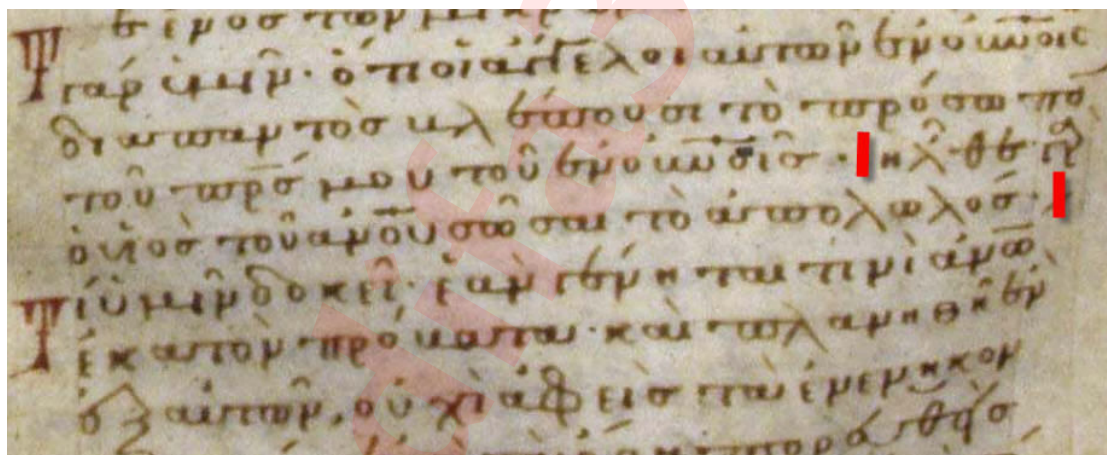 ἑνὸς τῶν μικρ
γὰρ ὑμῖν· ὅτι οἱ ἄγγελοι αὐτῶν ἐν οὐνοις
διαπαντὸς βλέπουσι τὸ πρόσωπο
τοῦ πρς μου τοῦ ἐν οὐνοις· ἦλθε γὰρ
ὁ υἱὸς τοῦ ανου σῶσαι τὸ ἀπολωλός·
Τί ὑμῖν δοκεῖ· ἐὰν γένηται τινὶ ανω
ἑκατὸν πρόβατα· καὶ πλανηθῆ ἓν
ἐξ αὐτῶν, οὐχὶ ἀφεὶς τὰ ἐνενηκον
πορευθεὶς